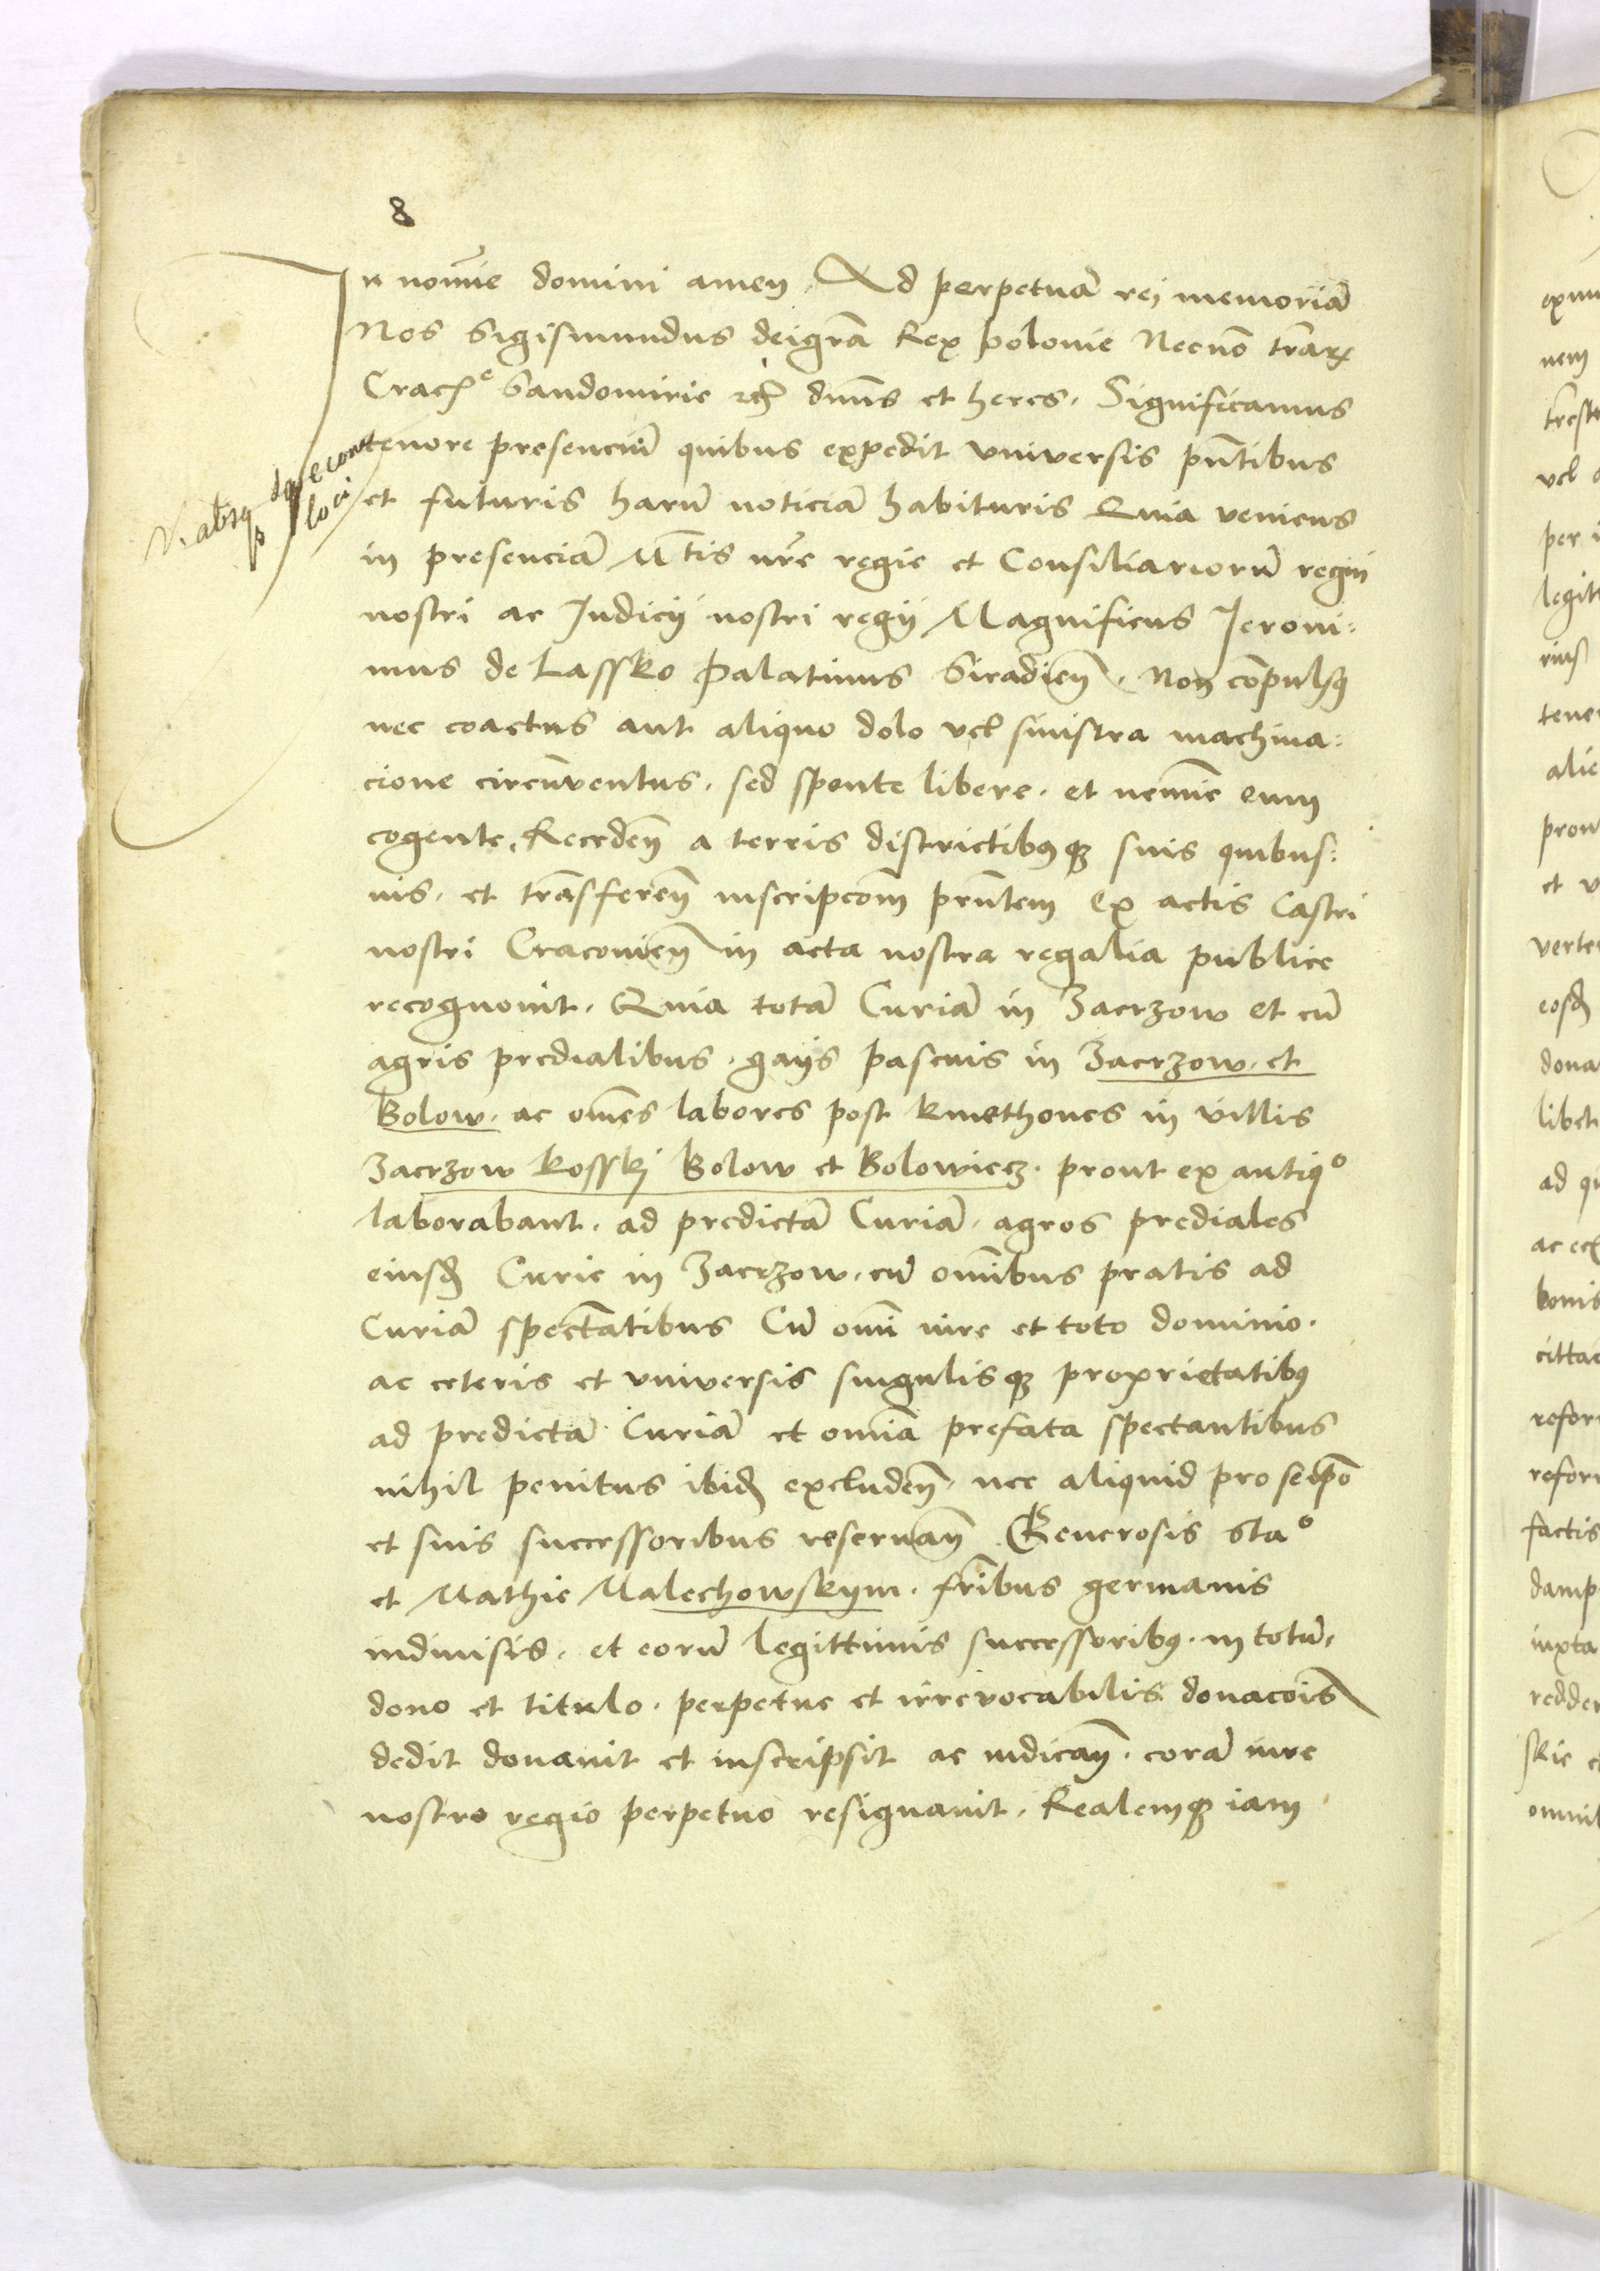 8
In noīe domini amen. Ad perpetuā rei memoriā
Nos Sigismundus dei grā Rex polonie Necnō trarꝝ
Cracꝭᵉ Sandomirie dn̄s et heres. Significamus
tenore presenciū quibus expedit vniversis pn̄tibus
et futuris harū noticiā habituris Quia veniens
in presenciā Mtis nr̄e regie et Consiliariorū regni
nostri ac Judicij nostri regij Magnificus Jeroni:
mus de Lassko Palatinus Siradien̄. Non cōpulsꝯ
nec coactus aut aliquo dolo vel sinistra machina:
cione circūventus. sed sponte libere. et nemīe eum
cogente. Receden̄ a terris districtibꝯqꝫ suis quibus:
uis. et trāsferen̄ inscripcōm prn̄tem ex actis Castri
nostri Cracovien̄ in acta nostra regalia publice
recognovit. Quia totā Curiā in Zacrzow et cū
agris predialibus. gaijs pascuis in Zacrzow. et
Bolow. ac om̄es labores post kmethones in villis
Zacrzow Kosskj Bolow et Bolowiecz. prout ex antiqᵒ
laborabant. ad predictā Curiā. agros prediales
eiusd Curie in Zacrzow. cū om̄ibus pratis ad
Curiā spectātibus Cū omī iure et toto dominio.
ac ceteris et vniversis singulisqꝫ proprietatibꝯ
ad predictā Curiā et omīa prefata spectantibus
nihil penitus ibid excluden̄. nec aliquid pro seip̄o
et suis successoribus reservan̄ Generosis Staᵒ
et Mathie Malechowskym. fr̄ibus germanis
indivisis. et eorū legittimis successoribꝯ. in totū,
dono et titulo. perpetue et irrevocabilis donacōis
dedit donavit et inscripsit ac indican̄. corā iure
nostro regio perpetuo resignavit. Realemqꝫ iam